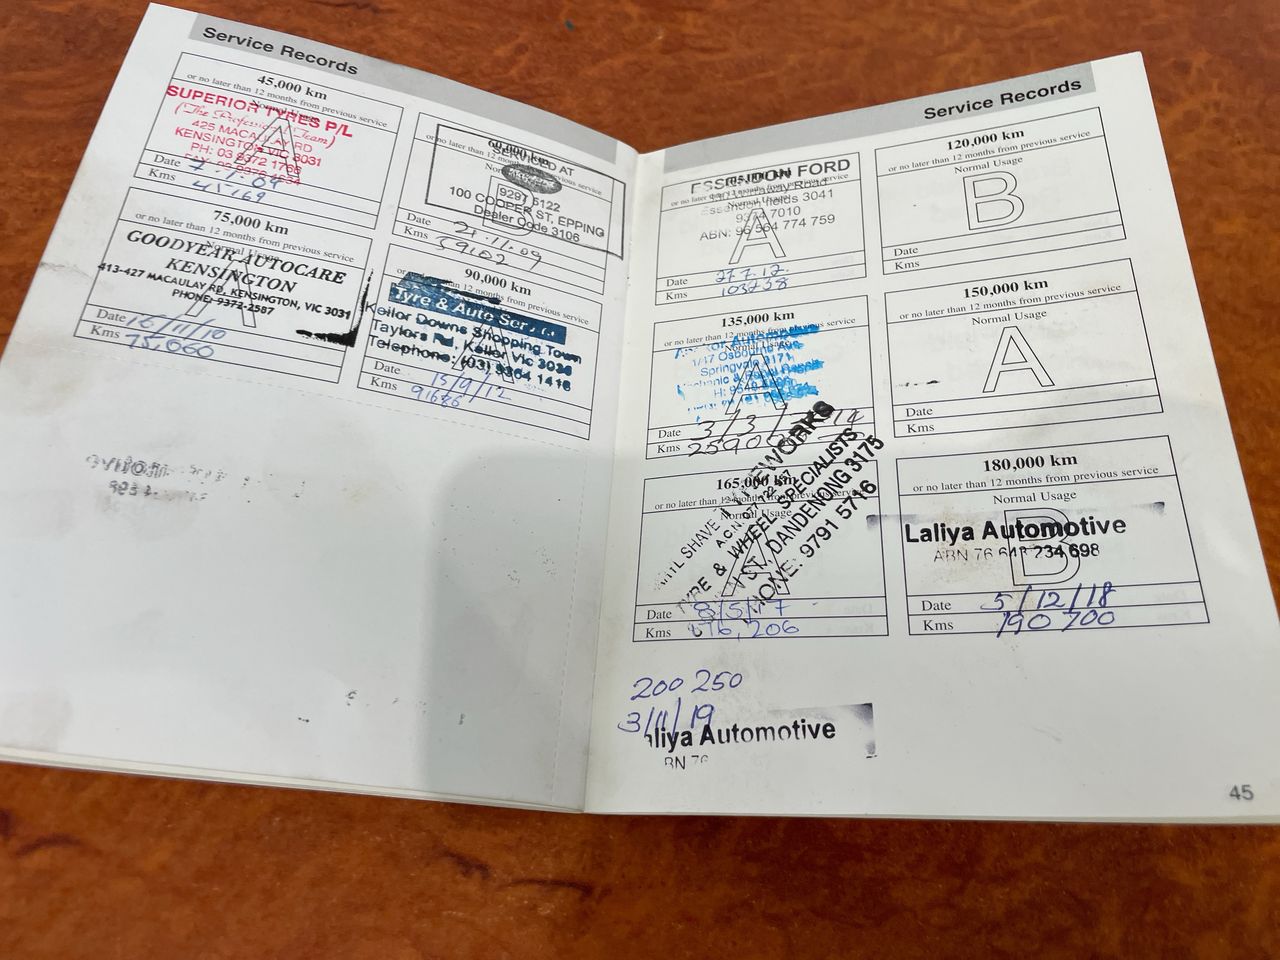 Service Records
45,000 km
or no later than 12 months from previous service
Normal Usage
SUPERIOR TYRES P/L
(The Professional Team)
425 MACAULAY RD
KENSINGTON VIC 3031
PH: 03 9372 1766
A
Date
Kms 45169
60,000 km
or no later than 12 months from previous service
SERVICED AT
9297 6122
100 COOPER ST, EPPING
Dealer Code 3106
Date 21.11.09
Kms 59102
75,000 km
or no later than 12 months from previous service
Normal Usage
GOODYEAR AUTOCARE
KENSINGTON
413-427 MACAULAY RD, KENSINGTON, VIC 3031
PHONE: 9372-2587
A
Date 16/11/10
Kms 75,060
90,000 km
or no later than 12 months from previous service
Tyre & Auto Service
Keilor Downs Shopping Town
Taylors Rd, Keilor Vic 3036
Telephone: (03) 9364 1416
Date 15/9/12
Kms 91686
Service Records
ESSENDON FORD
or no later than 12 months from previous service
Normal Usage
Essendon Fields 3041
9374 7010
ABN: 96 564 774 759
A
Date 27.7.12
Kms 103738
120,000 km
or no later than 12 months from previous service
Normal Usage
B
Date
Kms
135,000 km
or no later than 12 months from previous service
Normal Usage
Springvale 3171
A
Date 3/3/
Kms
150,000 km
or no later than 12 months from previous service
Normal Usage
A
Date
Kms
165,000 km
or no later than 12 months from previous service
Normal Usage
TYRE & WHEEL SPECIALISTS
ST, DANDENONG 3175
PHONE: 9791 5716
A
Date 8/5/17
Kms 176,206
180,000 km
or no later than 12 months from previous service
Normal Usage
B
Laliya Automotive
ABN 76 643 234 698
Date 5/12/18
Kms 190 700
200 250
3/11/19
aliya Automotive
BN 76
45